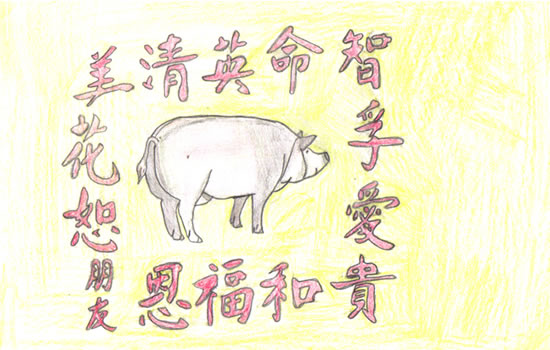 美清英命智
花
孚
恕
愛
朋友
恩福和貴